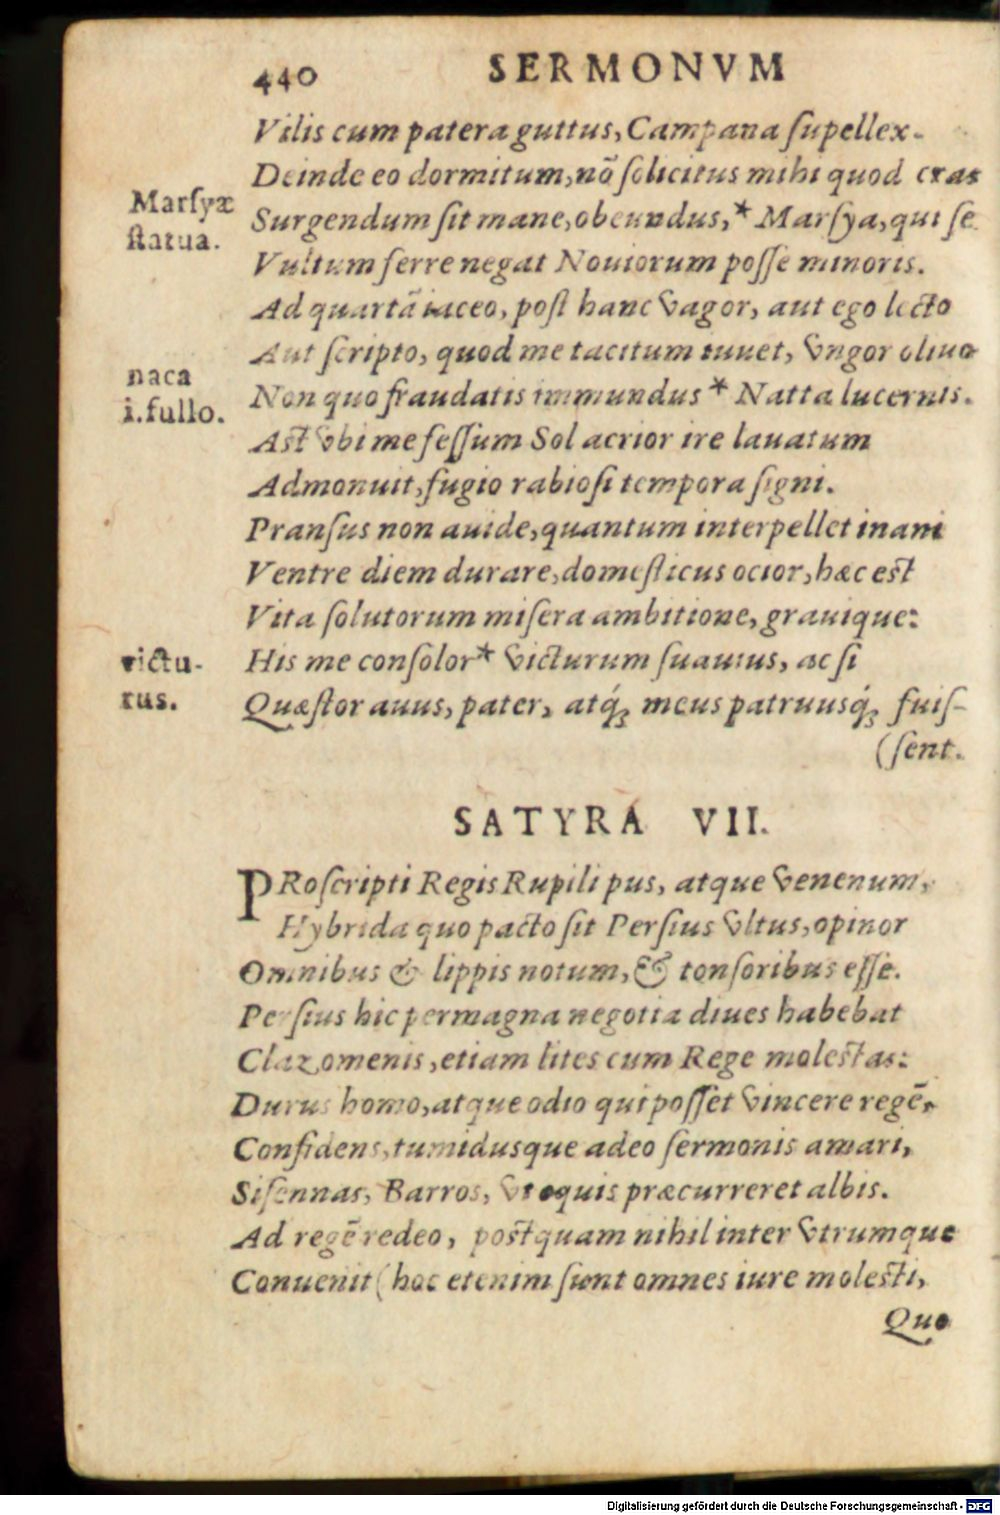 440 SERMONVM
Vilis cum patera guttus, Campana ſupellex.
Deinde eo dormitum, nõ ſolicitus mihi quod cras
Marſyæ
ſtatua.
Surgendum ſit mane, obeundus, * Marſya, qui ſe
Vultum ferre negat Nouiorum poſſe minoris.
Ad quartã iaceo, poſt hanc vagor, aut ego lecto
Aut ſcripto, quod me tacitum iuuet, vngor oliuo
naca
i. fullo.
Non quo fraudatis immundus * Natta lucernis.
Aſt vbi me feſſum Sol acrior ire lauatum
Admonuit, fugio rabioſi tempora ſigni.
Pranſus non auide, quantum interpellet inani
Ventre diem durare, domeſticus ocior, hæc eſt
Vita ſolutorum miſera ambitione, grauique:
victu-
rus.
His me conſolor * victurum ſuauius, ac ſi
Quæſtor auus, pater, atq́; meus patruusq́; fuiſ-
(ſent.
SATYRA VII.
PRoſcripti Regis Rupili pus, atque venenum,
Hybrida quo pacto ſit Perſius vltus, opinor
Omnibus & lippis notum, & tonſoribus eſſe.
Perſius hic permagna negotia diues habebat
Clazomenis, etiam lites cum Rege moleſtas:
Durus homo, atque odio qui poſſet vincere regẽ,
Confidens, tumidusque adeo ſermonis amari,
Siſennas, Barros, vt equis præcurreret albis.
Ad regẽ redeo, poſtquam nihil inter vtrumque
Conuenit (hoc etenim ſunt omnes iure moleſti,
Quo
Digitalisierung gefördert durch die Deutsche Forschungsgemeinschaft - DFG